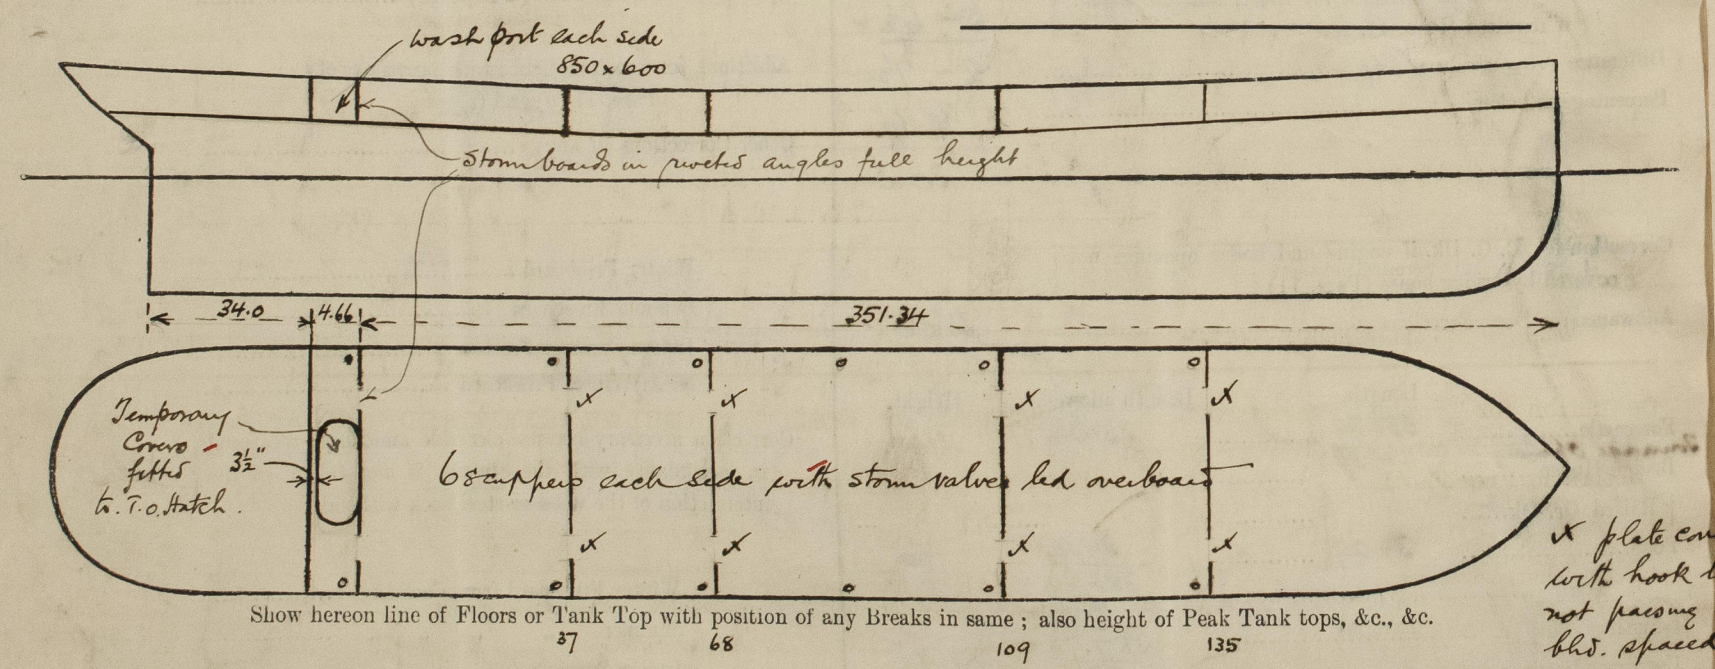 wash port each side
850 x 600
Stormboards in riveted angles full height
34.0
4.66
351.34
Temporary
Covers
fitted
to T.O. Hatch.
3½"
6 scuppers each side with storm valves led overboard
x
x
x
x
x
x
x
x
x plate con
with hook
not passing
bhd. spaced
Show hereon line of Floors or Tank Top with position of any Breaks in same ; also height of Peak Tank tops, &c., &c.
37
68
109
135